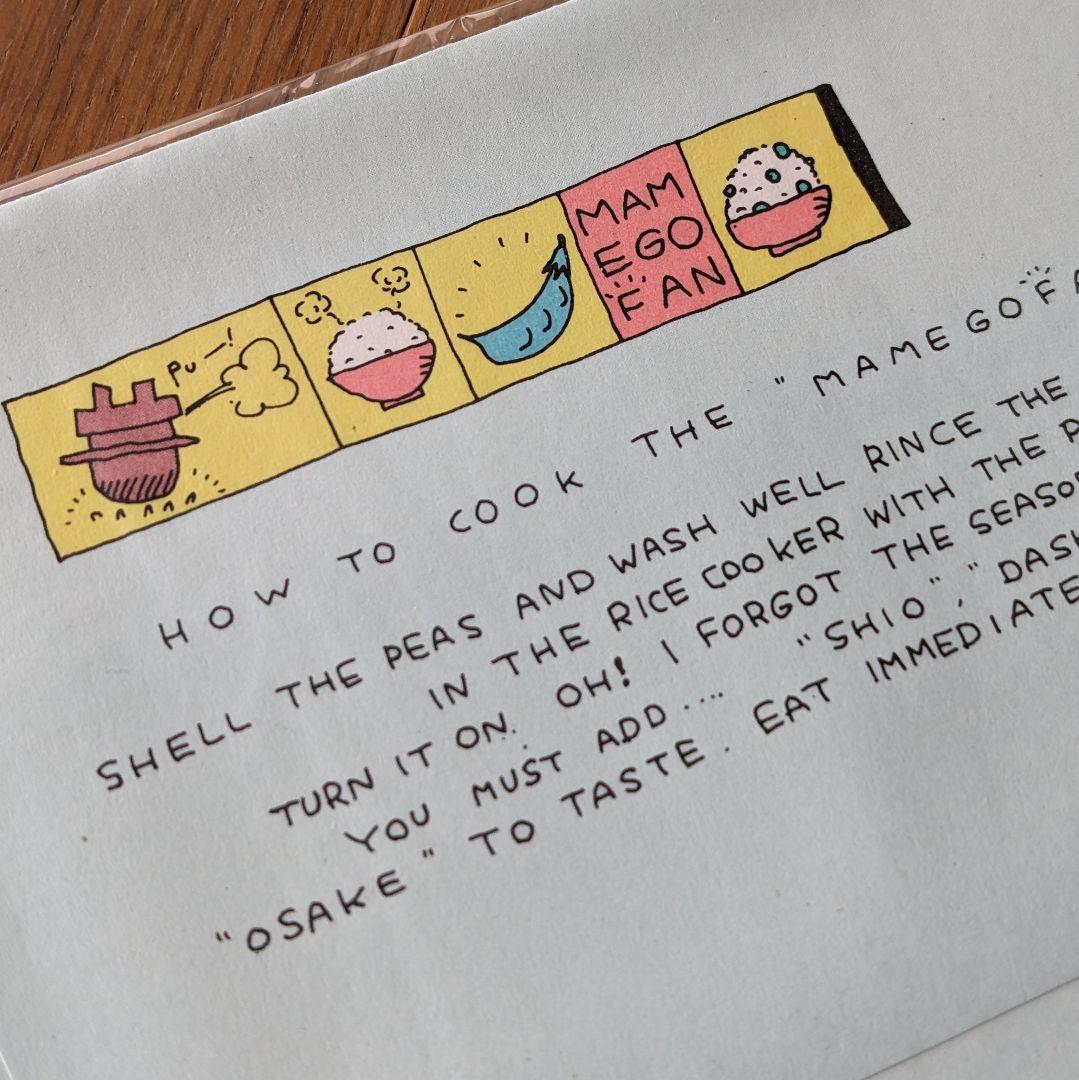 PU—!
MAM
EGO
FAN
HOW TO COOK THE "MAMEGOFA
SHELL THE PEAS AND WASH WELL RINCE THE
IN THE RICE COOKER WITH THE P
TURN IT ON. OH! I FORGOT THE SEASO
YOU MUST ADD.... "SHIO", "DASH
"OSAKE" TO TASTE. EAT IMMEDIATE